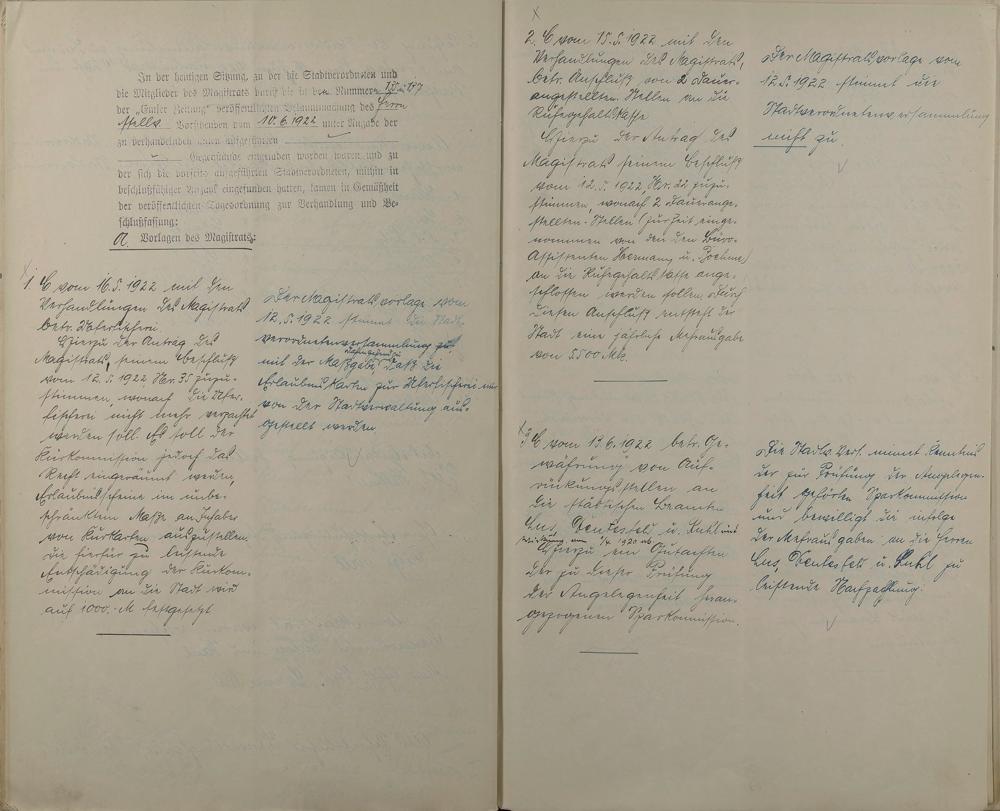 In der heutigen Sitzung, zu der die Stadtverordneten und
die Mitglieder des Magistrats durch die in den Nummern
der „Emser Zeitung" veröffentlichten Bekanntmachung des Herrn
stellv. Vorsitzenden vom 10.6.1922 unter Angabe der
zu verhandelnden unten aufgeführten
Gegenstände eingeladen worden waren und zu
der sich die vorseits aufgeführten Stadtverordneten, mithin in
beschlußfähiger Anzahl eingefunden hatten, kamen in Gemäßheit
der veröffentlichten Tagesordnung zur Verhandlung und Be-
schlußfassung:
A. Vorlagen des Magistrats:
1. E vom 16.5.1922 mit den
Verhandlungen des Magistrats
betr. Uferfischerei.
Hierzu der Antrag des
Magistrats, seinem Beschluß
vom 12.5.1922, Nr. 35 zuzu-
stimmen, wonach die Ufer-
fischerei nicht mehr verpachtet
werden soll. Es soll der
Kurkommission jedoch das
Recht eingeräumt werden,
Erlaubnisscheine im unbe-
schränktem Maße an Inhaber
von Kurkarten auszustellen.
Die hierfür zu leistende
Entschädigung der Kurkom-
mission an die Stadt wird
auf 1000.- M festgesetzt
Der Magistratsvorlage vom
12.5.1922 stimmt die Stadt-
verordnetenversammlung zu,
mit der Maßgabe, daß die
Erlaubniskarten zur Uferfischerei nur
von der Stadtverwaltung aus-
gestellt werden.
X
2. E vom 15.5.1922 mit den
Verhandlungen des Magistrats,
betr. Anschluß von 2 Dauer-
angestellten-Stellen an die
Ruhegehaltskasse
Hierzu der Antrag des
Magistrats seinem Beschluß
vom 12.5.1922, Nr. 22 zuzu-
stimmen, wonach 2 Dauerange-
stellten-Stellen (zur Zeit einge-
nommen von den den Büro-
Assistenten Hermann u. Boehme)
an die Ruhegehaltskasse ange-
schlossen werden sollen. Durch
diesen Anschluß entsteht der
Stadt eine jährliche Mehrausgabe
von 5500 Mk.
Der Magistratsvorlage vom
12.5.1922 stimmt die
Stadtverordnetenversammlung
nicht zu.
X
3. E vom 13.6.1922 betr. Ge-
währung von Auf-
rückungsstellen an
die städtischen Beamten
u. Kuhl mit
Wirkung vom 1/4 1920 ab
Hierzu ein Gutachten
der zu dieser Prüfung
der Angelegenheit heran-
gezogenen Sparkommission.
Die Stadtv. Vers. nimmt Kenntnis
der zur Prüfung der Angelegen-
heit gehörten Sparkommission
und bewilligt die infolge
der Mehrausgaben an die Herren
u. Kuhl zu
leistende Nachzahlung.